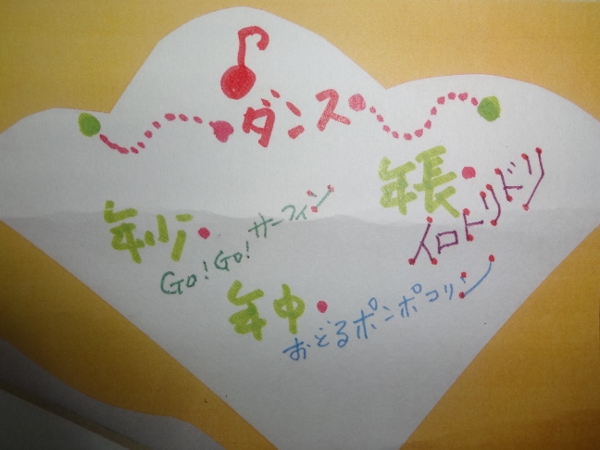 ダンス
年長・
イロトリドリ
年少・
GO!GO!サーフィン
年中・
おどるポンポコリン